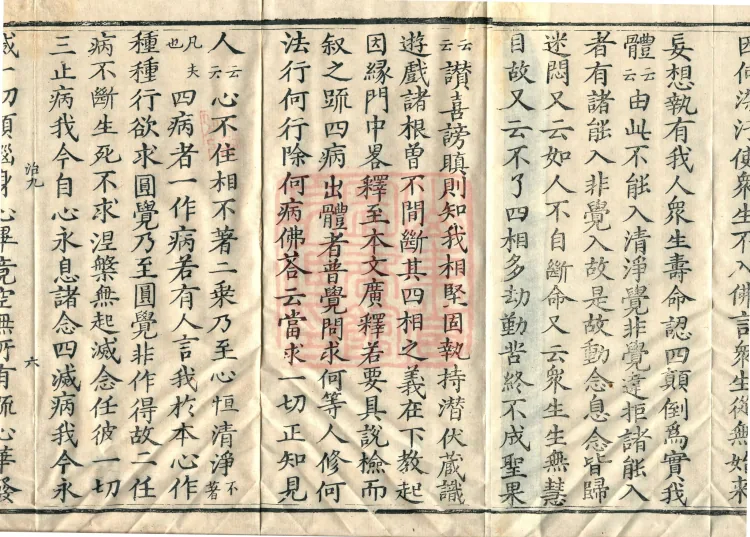 因何染汙使衆生不入佛言衆生從無始來
妄想執有我人衆生壽命認四顛倒爲實我
體云云由此不能入清淨覺非覺違拒諸能入
者有諸能入非覺入故是故動念息念皆歸
迷悶又云如人不自斷命又云衆生生無慧
目故又云不了四相多劫勤苦終不成聖果
云云讃喜謗瞋則知我相堅固執持潛伏藏識
遊戲諸根曾不間斷其四相之義在下教起
因緣門中畧釋至本文廣釋若要具說檢而
叙之䟽四病出體者普覺問求何等人修何
法行何行除何病佛荅云當求一切正知見
人云云心不住相不著二乗乃至心恒清淨不著
凡夫也四病者一作病若有人言我於本心作
種種行欲求圓覺乃至圓覺非作得故二任
病不斷生死不求涅槃無起滅念任彼一切
三止病我今自心永息諸念四滅病我今永
治九 六
滅一切煩惱身心畢竟空無所有䟽心華發